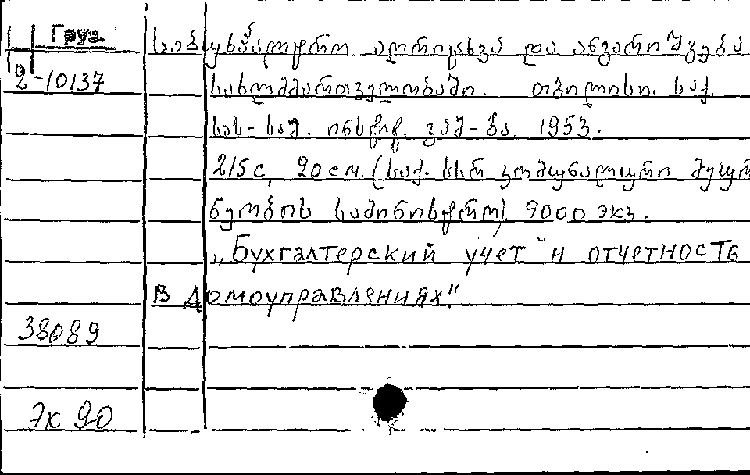 Груз
2-10137
ბუხჰალტრული აღრიცხვა და ანგარიშგება
სახლმმართველობაში. თბილისი. საქ.
სას-საჟ. ინსტიტ. გამ-ბა. 1953.
215 с. 20 см. (საქ. სსრ კომუნალური მეურ
ნეობის სამინისტრო) 9000 экз.
„Бухгалтерский учет и отчетность
в домоуправлениях."
38089
Эк 90